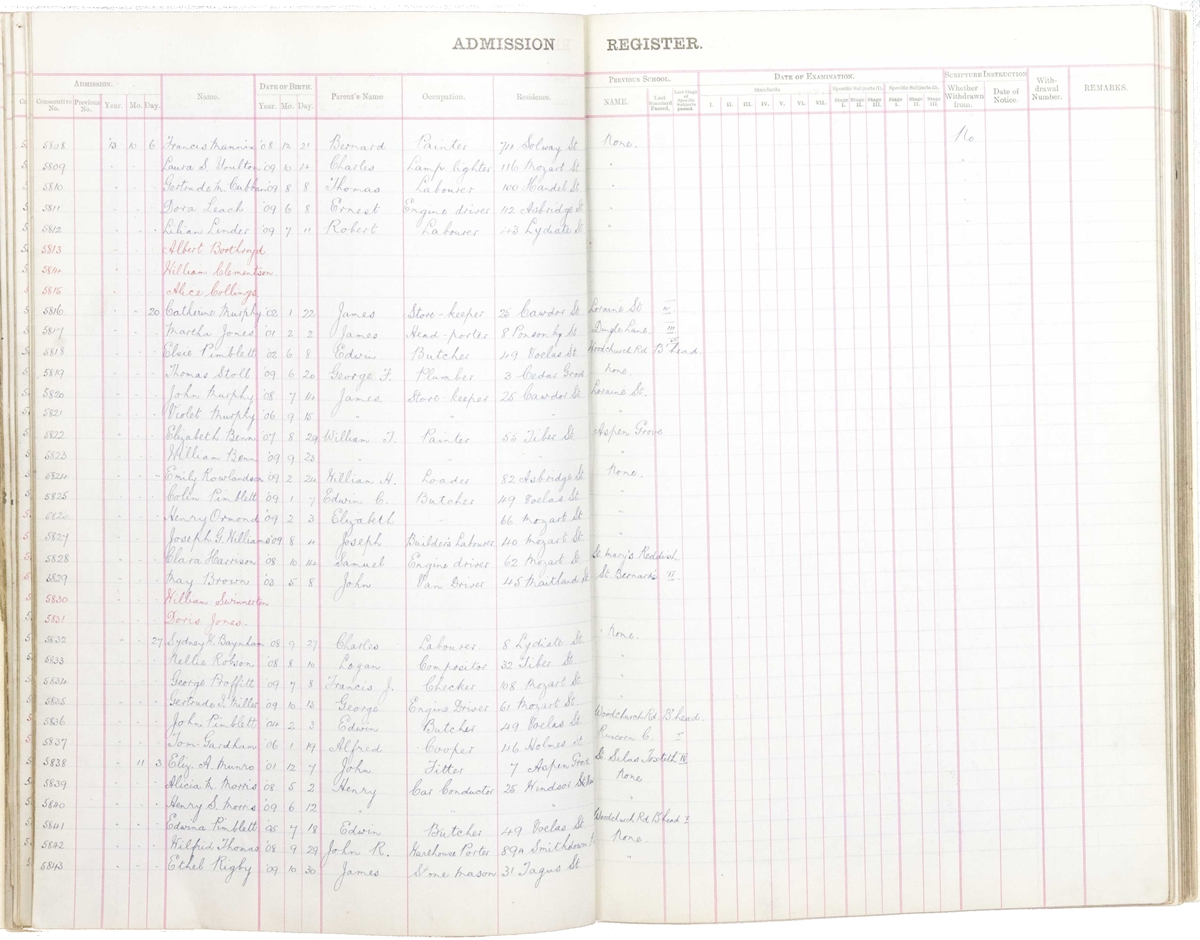 ADMISSION REGISTER.
ADMISSION. DATE OF BIRTH PREVIOUS SCHOOL. DATE OF EXAMINATION. SCRIPTURE INSTRUCTION
Consecutive No. Previous No. Year. Mo. Day. NAME. Year. Mo. Day. Parent's Name Occupation. Residence. NAME. Last Standard Passed. Last Stage of Specific Subjects passed. Standards Specific Subjects (1). Specific Subjects (2). Whether Withdrawn from. Date of Notice. With-drawal Number. REMARKS.
I. II. III. IV. V. VI. VII. Stage I. Stage II. Stage III. Stage I. Stage II. Stage III.
5808 '13 10 6 Frances Mannin '08 12 21 Bernard Painter 74 Solway St None. No
5809 " " " Laura S. Youlton '09 10 14 Charles Lamp lighter 116 Mozart St "
5810 " " " Gertrude M. Cubbin '09 8 8 Thomas Labourer 100 Handel St "
5811 " " " Dora Leach '09 6 8 Ernest Engine driver 42 Asbridge St "
5812 " " " Lilian Linder '09 7 11 Robert Labourer 43 Lydiate St "
5813 " " " Albert Boothroyd
5814 " " William Clementson
5815 " " " Alice Collings
5816 " " 20 Catherine Murphy '02 1 22 James Store-keeper 25 Cawdor St Lorraine St IV
5817 " " " Martha Jones '01 2 2 James Head-porter 8 Ponsonby St Dingle Lane III
5818 " " " Elsie Pimblett '02 6 8 Edwin Butcher 49 Voelas St Woodchurch Rd B'head
5819 " " " Thomas Stott '09 6 20 George F. Plumber 3 Cedar Grove None.
5820 " " " John Murphy '08 7 14 James Store-keeper 25 Cawdor St Lorraine St.
5821 " " " Violet Murphy '06 9 15 " " " "
5822 " " " Elizabeth Benn '07 8 29 William T. Painter 55 Tiber St Aspen Grove
5823 " " " William Benn '09 9 23 " " " "
5824 " " " Emily Rowlandson '09 2 24 William H. Loader 82 Asbridge St None.
5825 " " " Colin Pimblett '09 1 7 Edwin C. Butcher 49 Voelas St "
5826 " " " Henry Ormond '09 2 3 Elizabeth 66 Mozart St "
5827 " " " Joseph G. Williams '09 8 4 Joseph Builder's Labourer 40 Mozart St "
5828 " " " Clara Harrison '08 10 14 Samuel Engine driver 62 Mozart St St Mary's Reddish
5829 " " " May Brown '03 5 8 John Van Driver 45 Maitland St St Bernard's VI
5830 " " " William Swinnerton
5831 " " " Doris Jones.
5832 " " 27 Sydney H. Baynham '08 9 27 Charles Labourer 8 Lydiate St None.
5833 " " " Nellie Robson '08 8 10 Logan Compositor 32 Tiber St "
5834 " " " George Proffitt '09 7 8 Francis J. Checker 108 Mozart St "
5835 " " " Gertrude I. Miller '09 10 13 George Engine Driver 61 Mozart St "
5836 " " " John Pimblett '04 2 3 Edwin Butcher 49 Voelas St Woodchurch Rd B'head
5837 " " " Tom Gardham '06 1 19 Alfred Cooper 46 Holmes St Runcorn C. I
5838 " 11 3 Eliz. A. Munro '01 12 7 John Fitter 7 Aspen Grove St Silas Toxteth IV
5839 " " " Alicia M. Morris '08 5 2 Henry Car Conductor 25 Windsor None
5840 " " " Henry S. Morris '09 6 12 " " " "
5841 " " " Edwina Pimblett '05 7 18 Edwin Butcher 49 Voelas St Woodchurch Rd B'head I
5842 " " " Wilfrid Thomas '08 9 29 John R. Warehouse Porter 89A Smithdown None.
5843 " " " Ethel Rigby '09 10 30 James S'me mason 31 Tagus St "